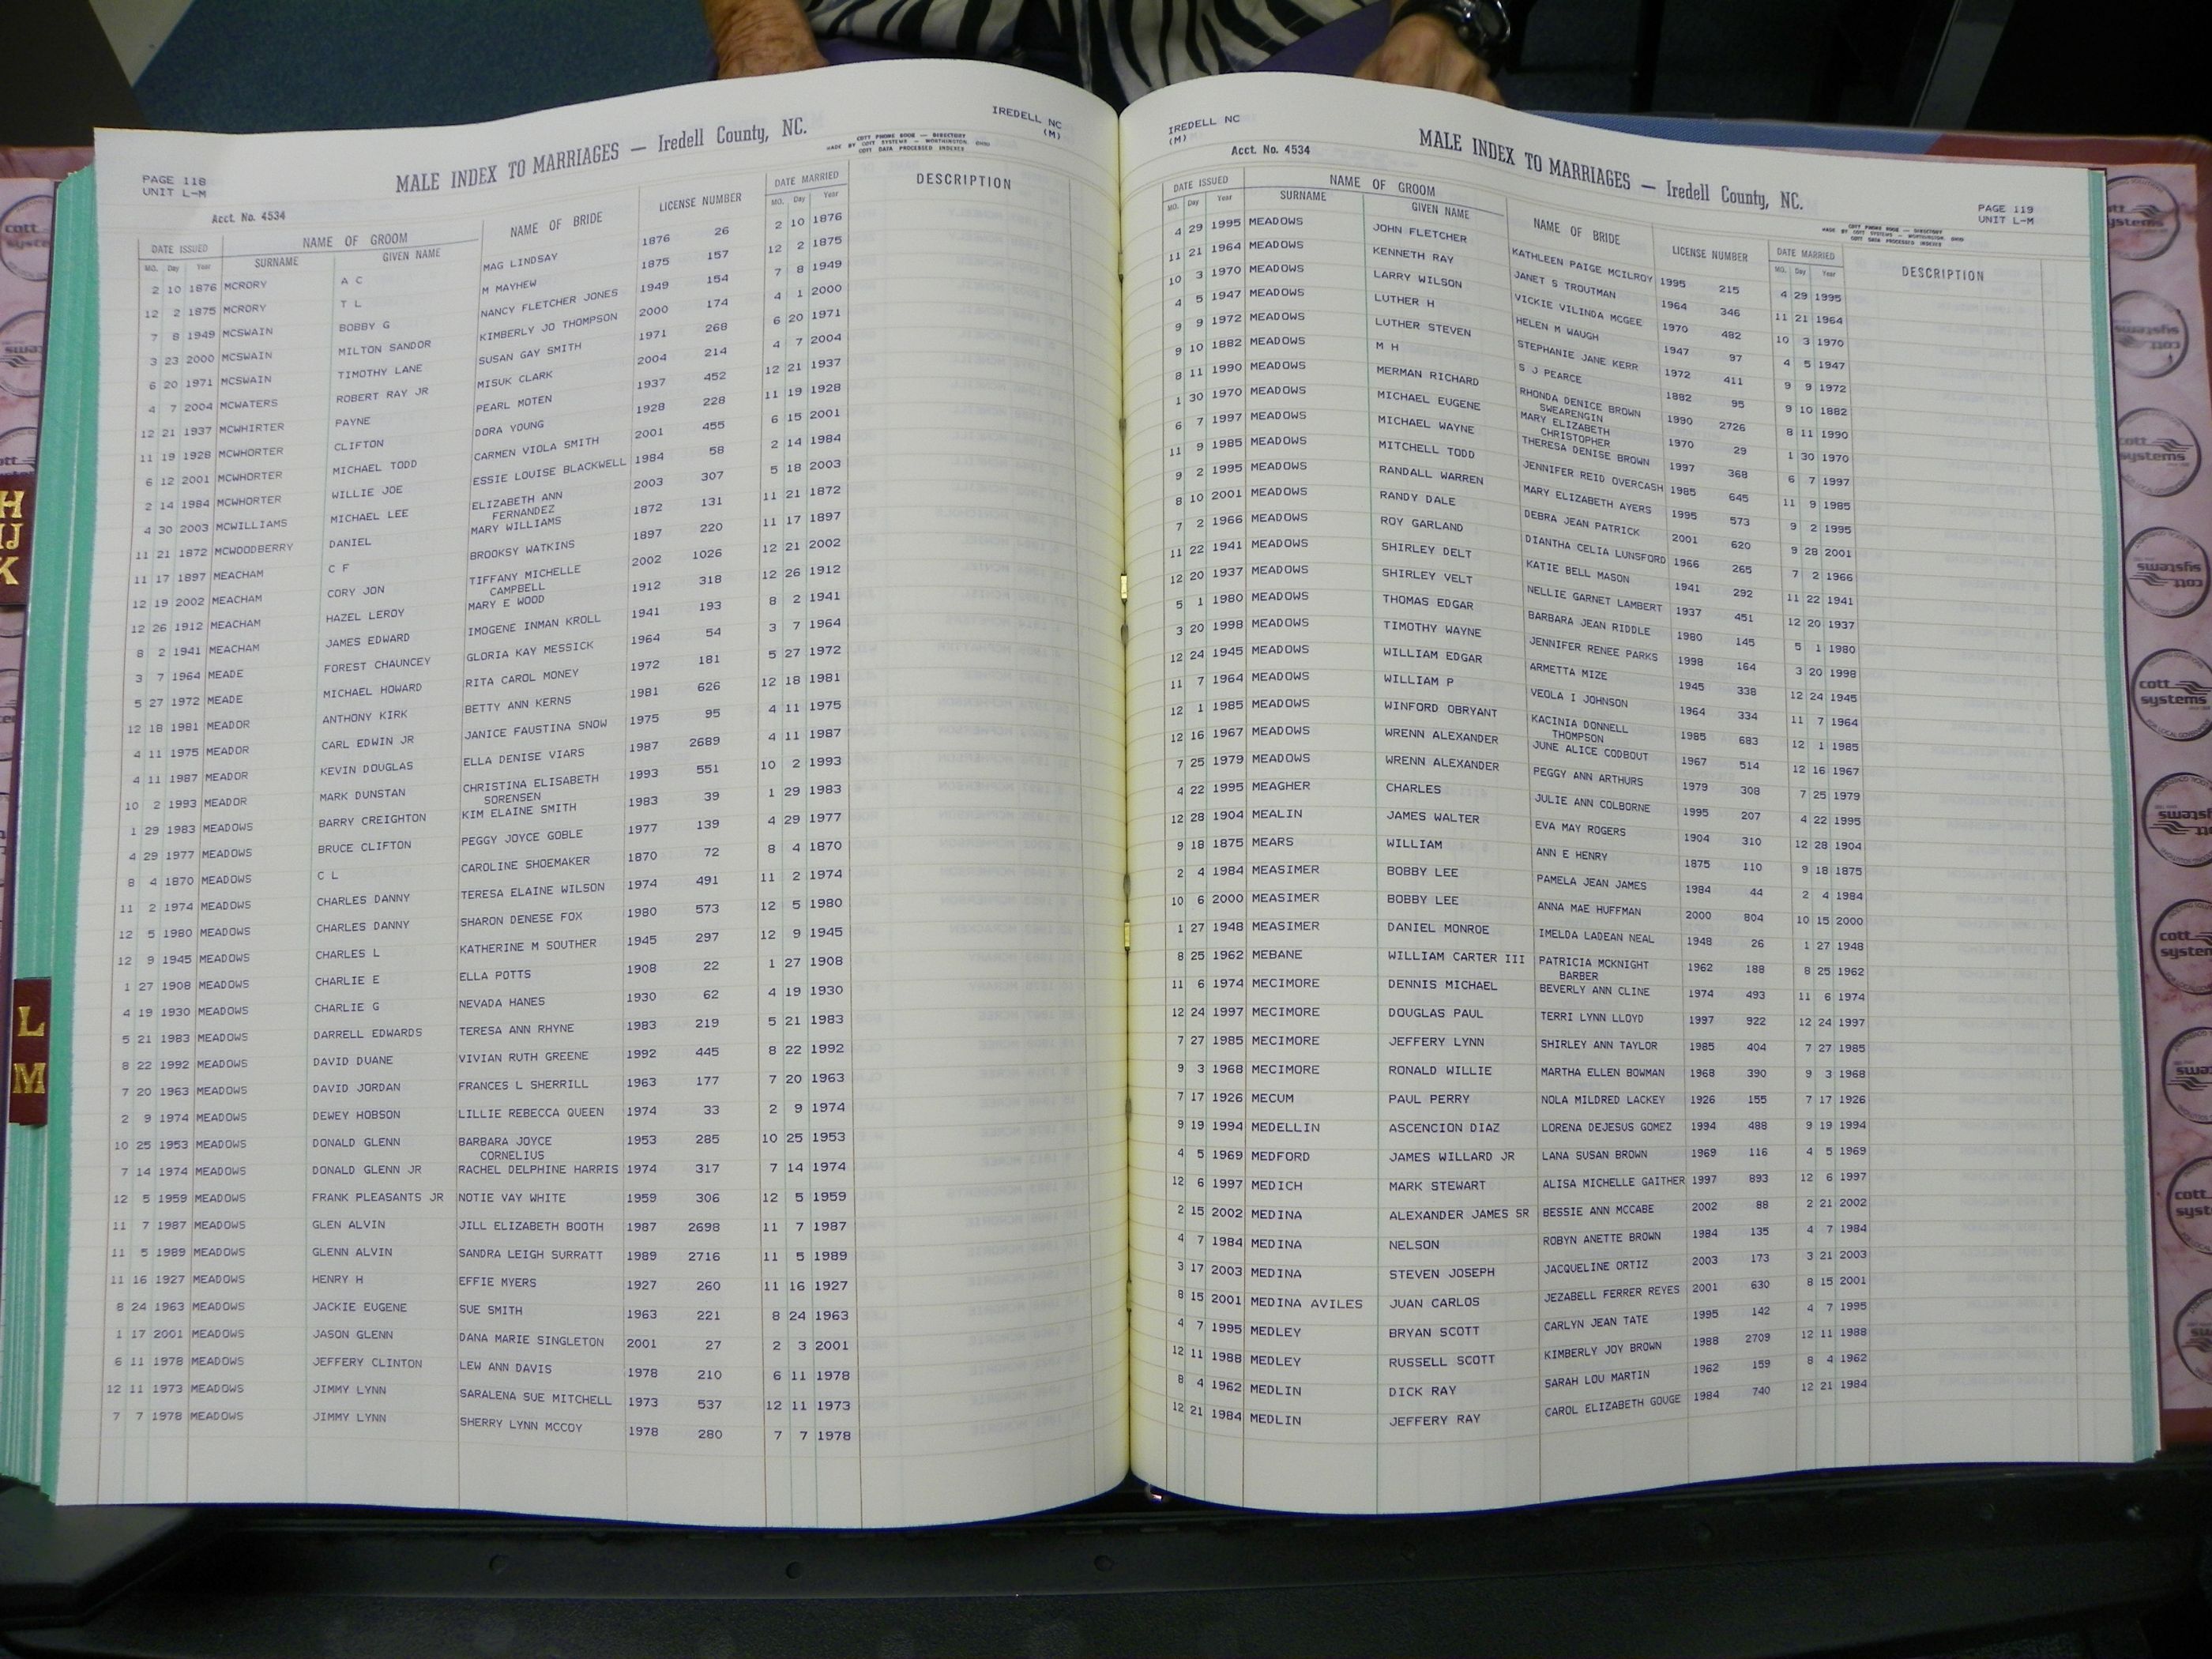 IREDELL NC
(M)
MALE INDEX TO MARRIAGES — Iredell County, NC.
COTT PHONE BOOK — DIRECTORY
MADE BY COTT SYSTEMS — WORTHINGTON, OHIO
COTT DATA PROCESSED INDEXES
PAGE 118
UNIT L-M
Acct. No. 4534
DATE ISSUED NAME OF GROOM NAME OF BRIDE LICENSE NUMBER DATE MARRIED DESCRIPTION
MO. Day Year SURNAME GIVEN NAME MO. Day Year
2 10 1876 MCRORY A C MAG LINDSAY 1876 26 2 10 1876
12 2 1875 MCRORY T L M MAYHEW 1875 157 12 2 1875
7 8 1949 MCSWAIN BOBBY G NANCY FLETCHER JONES 1949 154 7 8 1949
3 23 2000 MCSWAIN MILTON SANDOR KIMBERLY JO THOMPSON 2000 174 4 1 2000
6 20 1971 MCSWAIN TIMOTHY LANE SUSAN GAY SMITH 1971 268 6 20 1971
4 7 2004 MCWATERS ROBERT RAY JR MISUK CLARK 2004 214 4 7 2004
12 21 1937 MCWHIRTER PAYNE PEARL MOTEN 1937 452 12 21 1937
11 19 1928 MCWHORTER CLIFTON DORA YOUNG 1928 228 11 19 1928
6 12 2001 MCWHORTER MICHAEL TODD CARMEN VIOLA SMITH 2001 455 6 15 2001
2 14 1984 MCWHORTER WILLIE JOE ESSIE LOUISE BLACKWELL 1984 58 2 14 1984
4 30 2003 MCWILLIAMS MICHAEL LEE ELIZABETH ANN 2003 307 5 18 2003
FERNANDEZ
11 21 1872 MCWOODBERRY DANIEL MARY WILLIAMS 1872 131 11 21 1872
11 17 1897 MEACHAM C F BROOKSY WATKINS 1897 220 11 17 1897
12 19 2002 MEACHAM CORY JON TIFFANY MICHELLE 2002 1026 12 21 2002
CAMPBELL
12 26 1912 MEACHAM HAZEL LEROY MARY E WOOD 1912 318 12 26 1912
8 2 1941 MEACHAM JAMES EDWARD IMOGENE INMAN KROLL 1941 193 8 2 1941
3 7 1964 MEADE FOREST CHAUNCEY GLORIA KAY MESSICK 1964 54 3 7 1964
5 27 1972 MEADE MICHAEL HOWARD RITA CAROL MONEY 1972 181 5 27 1972
12 18 1981 MEADOR ANTHONY KIRK BETTY ANN KERNS 1981 626 12 18 1981
4 11 1975 MEADOR CARL EDWIN JR JANICE FAUSTINA SNOW 1975 95 4 11 1975
4 11 1987 MEADOR KEVIN DOUGLAS ELLA DENISE VIARS 1987 2689 4 11 1987
10 2 1993 MEADOR MARK DUNSTAN CHRISTINA ELISABETH 1993 551 10 2 1993
SORENSEN
1 29 1983 MEADOWS BARRY CREIGHTON KIM ELAINE SMITH 1983 39 1 29 1983
4 29 1977 MEADOWS BRUCE CLIFTON PEGGY JOYCE GOBLE 1977 139 4 29 1977
8 4 1870 MEADOWS C L CAROLINE SHOEMAKER 1870 72 8 4 1870
11 2 1974 MEADOWS CHARLES DANNY TERESA ELAINE WILSON 1974 491 11 2 1974
12 5 1980 MEADOWS CHARLES DANNY SHARON DENESE FOX 1980 573 12 5 1980
12 9 1945 MEADOWS CHARLES L KATHERINE M SOUTHER 1945 297 12 9 1945
1 27 1908 MEADOWS CHARLIE E ELLA POTTS 1908 22 1 27 1908
4 19 1930 MEADOWS CHARLIE G NEVADA HANES 1930 62 4 19 1930
5 21 1983 MEADOWS DARRELL EDWARDS TERESA ANN RHYNE 1983 219 5 21 1983
8 22 1992 MEADOWS DAVID DUANE VIVIAN RUTH GREENE 1992 445 8 22 1992
7 20 1963 MEADOWS DAVID JORDAN FRANCES L SHERRILL 1963 177 7 20 1963
2 9 1974 MEADOWS DEWEY HOBSON LILLIE REBECCA QUEEN 1974 33 2 9 1974
10 25 1953 MEADOWS DONALD GLENN BARBARA JOYCE 1953 285 10 25 1953
CORNELIUS
7 14 1974 MEADOWS DONALD GLENN JR RACHEL DELPHINE HARRIS 1974 317 7 14 1974
12 5 1959 MEADOWS FRANK PLEASANTS JR NOTIE VAY WHITE 1959 306 12 5 1959
11 7 1987 MEADOWS GLEN ALVIN JILL ELIZABETH BOOTH 1987 2698 11 7 1987
11 5 1989 MEADOWS GLENN ALVIN SANDRA LEIGH SURRATT 1989 2716 11 5 1989
11 16 1927 MEADOWS HENRY H EFFIE MYERS 1927 260 11 16 1927
8 24 1963 MEADOWS JACKIE EUGENE SUE SMITH 1963 221 8 24 1963
1 17 2001 MEADOWS JASON GLENN DANA MARIE SINGLETON 2001 27 2 3 2001
6 11 1978 MEADOWS JEFFERY CLINTON LEW ANN DAVIS 1978 210 6 11 1978
12 11 1973 MEADOWS JIMMY LYNN SARALENA SUE MITCHELL 1973 537 12 11 1973
7 7 1978 MEADOWS JIMMY LYNN SHERRY LYNN MCCOY 1978 280 7 7 1978
IREDELL NC
(M)
Acct. No. 4534
MALE INDEX TO MARRIAGES — Iredell County, NC.
PAGE 119
UNIT L-M
COTT PHONE BOOK — DIRECTORY
MADE BY COTT SYSTEMS — WORTHINGTON, OHIO
COTT DATA PROCESSED INDEXES
DATE ISSUED NAME OF GROOM NAME OF BRIDE LICENSE NUMBER DATE MARRIED DESCRIPTION
MO. Day Year SURNAME GIVEN NAME MO. Day Year
4 29 1995 MEADOWS JOHN FLETCHER KATHLEEN PAIGE MCILROY 1995 215 4 29 1995
11 21 1964 MEADOWS KENNETH RAY JANET S TROUTMAN 1964 346 11 21 1964
10 3 1970 MEADOWS LARRY WILSON VICKIE VILINDA MCGEE 1970 482 10 3 1970
4 5 1947 MEADOWS LUTHER H HELEN M WAUGH 1947 97 4 5 1947
9 9 1972 MEADOWS LUTHER STEVEN STEPHANIE JANE KERR 1972 411 9 9 1972
9 10 1882 MEADOWS M H S J PEARCE 1882 95 9 10 1882
8 11 1990 MEADOWS MERMAN RICHARD RHONDA DENICE BROWN 1990 2726 8 11 1990
SWEARENGIN
1 30 1970 MEADOWS MICHAEL EUGENE MARY ELIZABETH 1970 29 1 30 1970
CHRISTOPHER
6 7 1997 MEADOWS MICHAEL WAYNE THERESA DENISE BROWN 1997 368 6 7 1997
11 9 1985 MEADOWS MITCHELL TODD JENNIFER REID OVERCASH 1985 645 11 9 1985
9 2 1995 MEADOWS RANDALL WARREN MARY ELIZABETH AYERS 1995 573 9 2 1995
8 10 2001 MEADOWS RANDY DALE DEBRA JEAN PATRICK 2001 620 9 28 2001
7 2 1966 MEADOWS ROY GARLAND DIANTHA CELIA LUNSFORD 1966 265 7 2 1966
11 22 1941 MEADOWS SHIRLEY DELT KATIE BELL MASON 1941 292 11 22 1941
12 20 1937 MEADOWS SHIRLEY VELT NELLIE GARNET LAMBERT 1937 451 12 20 1937
5 1 1980 MEADOWS THOMAS EDGAR BARBARA JEAN RIDDLE 1980 145 5 1 1980
3 20 1998 MEADOWS TIMOTHY WAYNE JENNIFER RENEE PARKS 1998 164 3 20 1998
12 24 1945 MEADOWS WILLIAM EDGAR ARMETTA MIZE 1945 338 12 24 1945
11 7 1964 MEADOWS WILLIAM P VEOLA I JOHNSON 1964 334 11 7 1964
12 1 1985 MEADOWS WINFORD OBRYANT KACINIA DONNELL 1985 683 12 1 1985
THOMPSON
12 16 1967 MEADOWS WRENN ALEXANDER JUNE ALICE CODBOUT 1967 514 12 16 1967
7 25 1979 MEADOWS WRENN ALEXANDER PEGGY ANN ARTHURS 1979 308 7 25 1979
4 22 1995 MEAGHER CHARLES JULIE ANN COLBORNE 1995 207 4 22 1995
12 28 1904 MEALIN JAMES WALTER EVA MAY ROGERS 1904 310 12 28 1904
9 18 1875 MEARS WILLIAM ANN E HENRY 1875 110 9 18 1875
2 4 1984 MEASIMER BOBBY LEE PAMELA JEAN JAMES 1984 44 2 4 1984
10 6 2000 MEASIMER BOBBY LEE ANNA MAE HUFFMAN 2000 804 10 15 2000
1 27 1948 MEASIMER DANIEL MONROE IMELDA LADEAN NEAL 1948 26 1 27 1948
8 25 1962 MEBANE WILLIAM CARTER III PATRICIA MCKNIGHT 1962 188 8 25 1962
BARBER
11 6 1974 MECIMORE DENNIS MICHAEL BEVERLY ANN CLINE 1974 493 11 6 1974
12 24 1997 MECIMORE DOUGLAS PAUL TERRI LYNN LLOYD 1997 922 12 24 1997
7 27 1985 MECIMORE JEFFERY LYNN SHIRLEY ANN TAYLOR 1985 404 7 27 1985
9 3 1968 MECIMORE RONALD WILLIE MARTHA ELLEN BOWMAN 1968 390 9 3 1968
7 17 1926 MECUM PAUL PERRY NOLA MILDRED LACKEY 1926 155 7 17 1926
9 19 1994 MEDELLIN ASCENCION DIAZ LORENA DEJESUS GOMEZ 1994 488 9 19 1994
4 5 1969 MEDFORD JAMES WILLARD JR LANA SUSAN BROWN 1969 116 4 5 1969
12 6 1997 MEDICH MARK STEWART ALISA MICHELLE GAITHER 1997 893 12 6 1997
2 15 2002 MEDINA ALEXANDER JAMES SR BESSIE ANN MCCABE 2002 88 2 21 2002
4 7 1984 MEDINA NELSON ROBYN ANETTE BROWN 1984 135 4 7 1984
3 17 2003 MEDINA STEVEN JOSEPH JACQUELINE ORTIZ 2003 173 3 21 2003
8 15 2001 MEDINA AVILES JUAN CARLOS JEZABELL FERRER REYES 2001 630 8 15 2001
4 7 1995 MEDLEY BRYAN SCOTT CARLYN JEAN TATE 1995 142 4 7 1995
12 11 1988 MEDLEY RUSSELL SCOTT KIMBERLY JOY BROWN 1988 2709 12 11 1988
8 4 1962 MEDLIN DICK RAY SARAH LOU MARTIN 1962 159 8 4 1962
12 21 1984 MEDLIN JEFFERY RAY CAROL ELIZABETH GOUGE 1984 740 12 21 1984
H
IJ
K
L
M
cott
systems